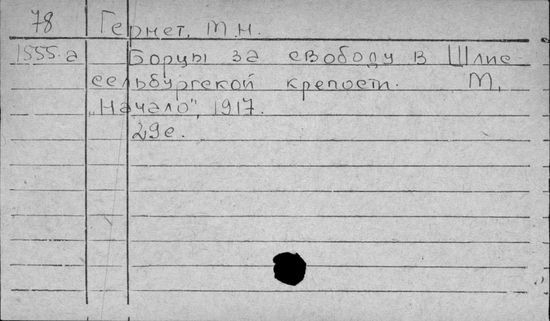 78 Гернет, М.Н.
1555.а Борцы за свободу в Шлис
сельбургской крепости. М,
„Начало", 1917.
29с.